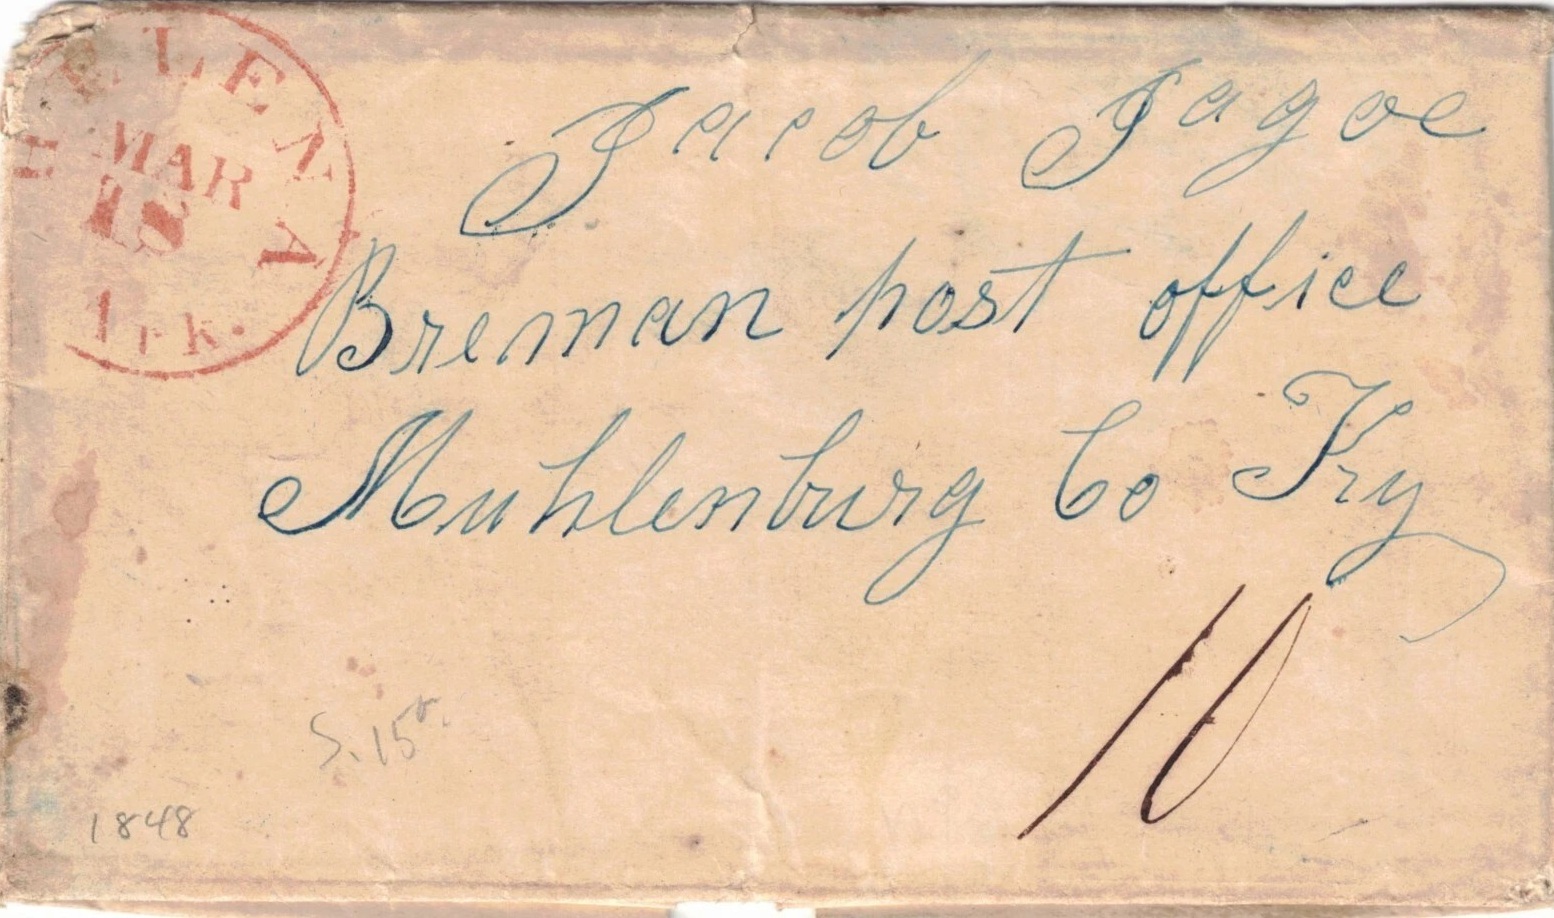 HELENA
MAR
18
Ark.
Jacob Jagoe
Breman post office
Muhlenburg Co Ky
10
S. 15
1848